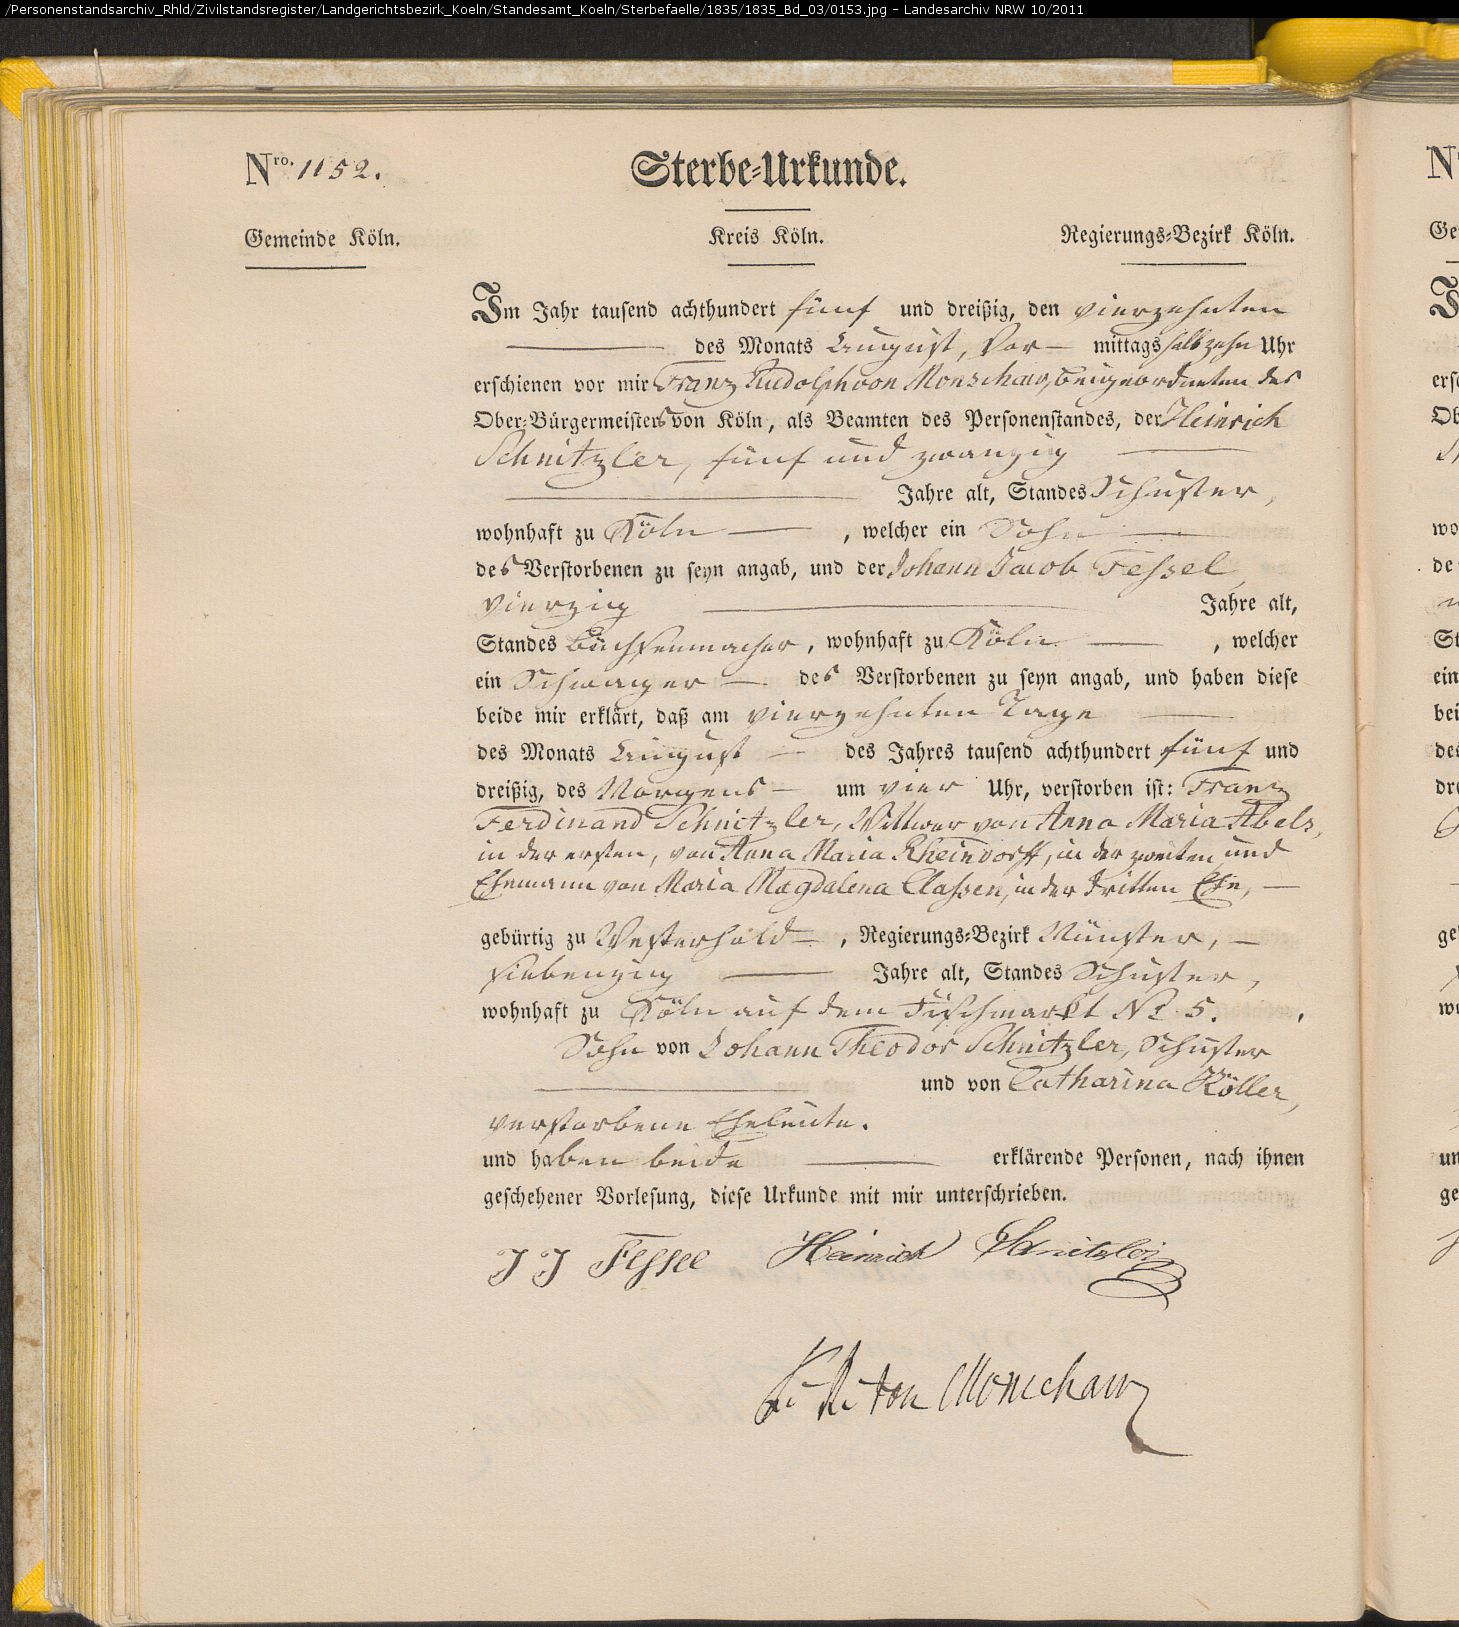 /Personenstandsarchiv_Rhld/Zivilstandsregister/Landgerichtsbezirk_Koeln/Standesamt_Koeln/Sterbefaelle/1835/1835_Bd_03/0153.jpg - Landesarchiv NRW 10/2011
Nro. 1152. Sterbe-Urkunde.
Gemeinde Köln. Kreis Köln. Regierungs-Bezirk Köln.
Im Jahr tausend achthundert fünf und dreißig, den vierzehnten
des Monats August, Vor mittags halb zehn Uhr
erschienen vor mir Franz Rudolph von Monschaw, beigeordneten des
Ober-Bürgermeisters von Köln, als Beamten des Personenstandes, der Heinrich
Schnitzler, fünf und zwanzig
Jahre alt, Standes Schuster,
wohnhaft zu Köln, welcher ein Sohn
des Verstorbenen zu seyn angab, und der Johann Jacob Fessel,
vierzig Jahre alt,
Standes Büchsenmacher, wohnhaft zu Köln, welcher
ein Schwager des Verstorbenen zu seyn angab, und haben diese
beide mir erklärt, daß am vierzehnten Tage
des Monats August des Jahres tausend achthundert fünf und
dreißig, des Morgens um vier Uhr, verstorben ist: Franz
Ferdinand Schnitzler, Wittwer von Anna Maria Abels,
in der ersten, von Anna Maria Rheindorff, in der zweiten und
Ehemann von Maria Magdalena Classen, in der dritten Ehe,
gebürtig zu Westerhold, Regierungs-Bezirk Münster,
siebenzig Jahre alt, Standes Schuster,
wohnhaft zu Köln auf dem Fischmarkt No 5.,
Sohn von Johann Theodor Schnitzler, Schuster
und von Catharina Köller,
verstorbene Eheleute.
und haben beide erklärende Personen, nach ihnen
geschehener Vorlesung, diese Urkunde mit mir unterschrieben.
J J Fessel Heinrich Schnitzler
F. R. von Monschaw